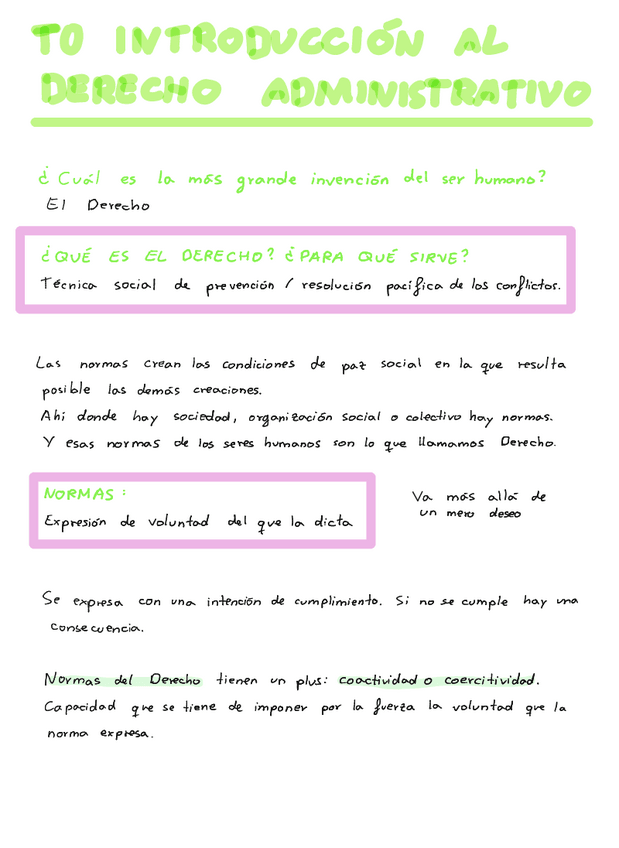 T0 INTRODUCCIÓN AL
DERECHO ADMINISTRATIVO
¿Cuál es la más grande invención del ser humano?
El Derecho
¿QUÉ ES EL DERECHO? ¿PARA QUÉ SIRVE?
Técnica social de prevención / resolución pacífica de los conflictos.
Las normas crean las condiciones de paz social en la que resulta
posible las demás creaciones.
Ahí donde hay sociedad, organización social o colectivo hay normas.
Y esas normas de los seres humanos son lo que llamamos Derecho.
NORMAS:
Expresión de voluntad del que la dicta
Va más allá de
un mero deseo
Se expresa con una intención de cumplimiento. Si no se cumple hay una
consecuencia.
Normas del Derecho tienen un plus: coactividad o coercitividad.
Capacidad que se tiene de imponer por la fuerza la voluntad que la
norma expresa.